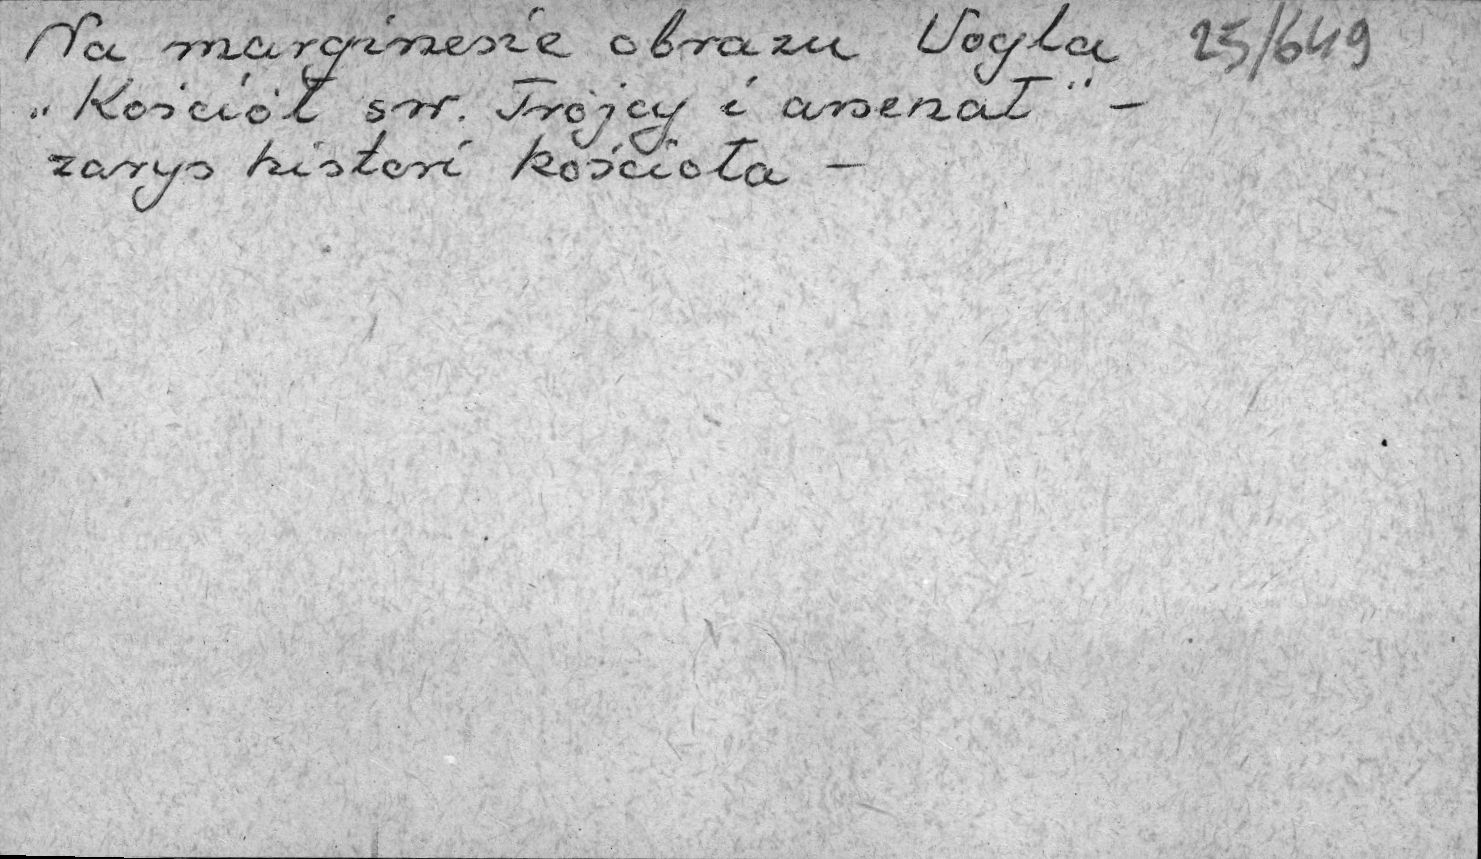 Na marginesie obrazu Vogla 25/649
„Kościół św. Trójcy i arsenał" –
zarys histori kościoła –